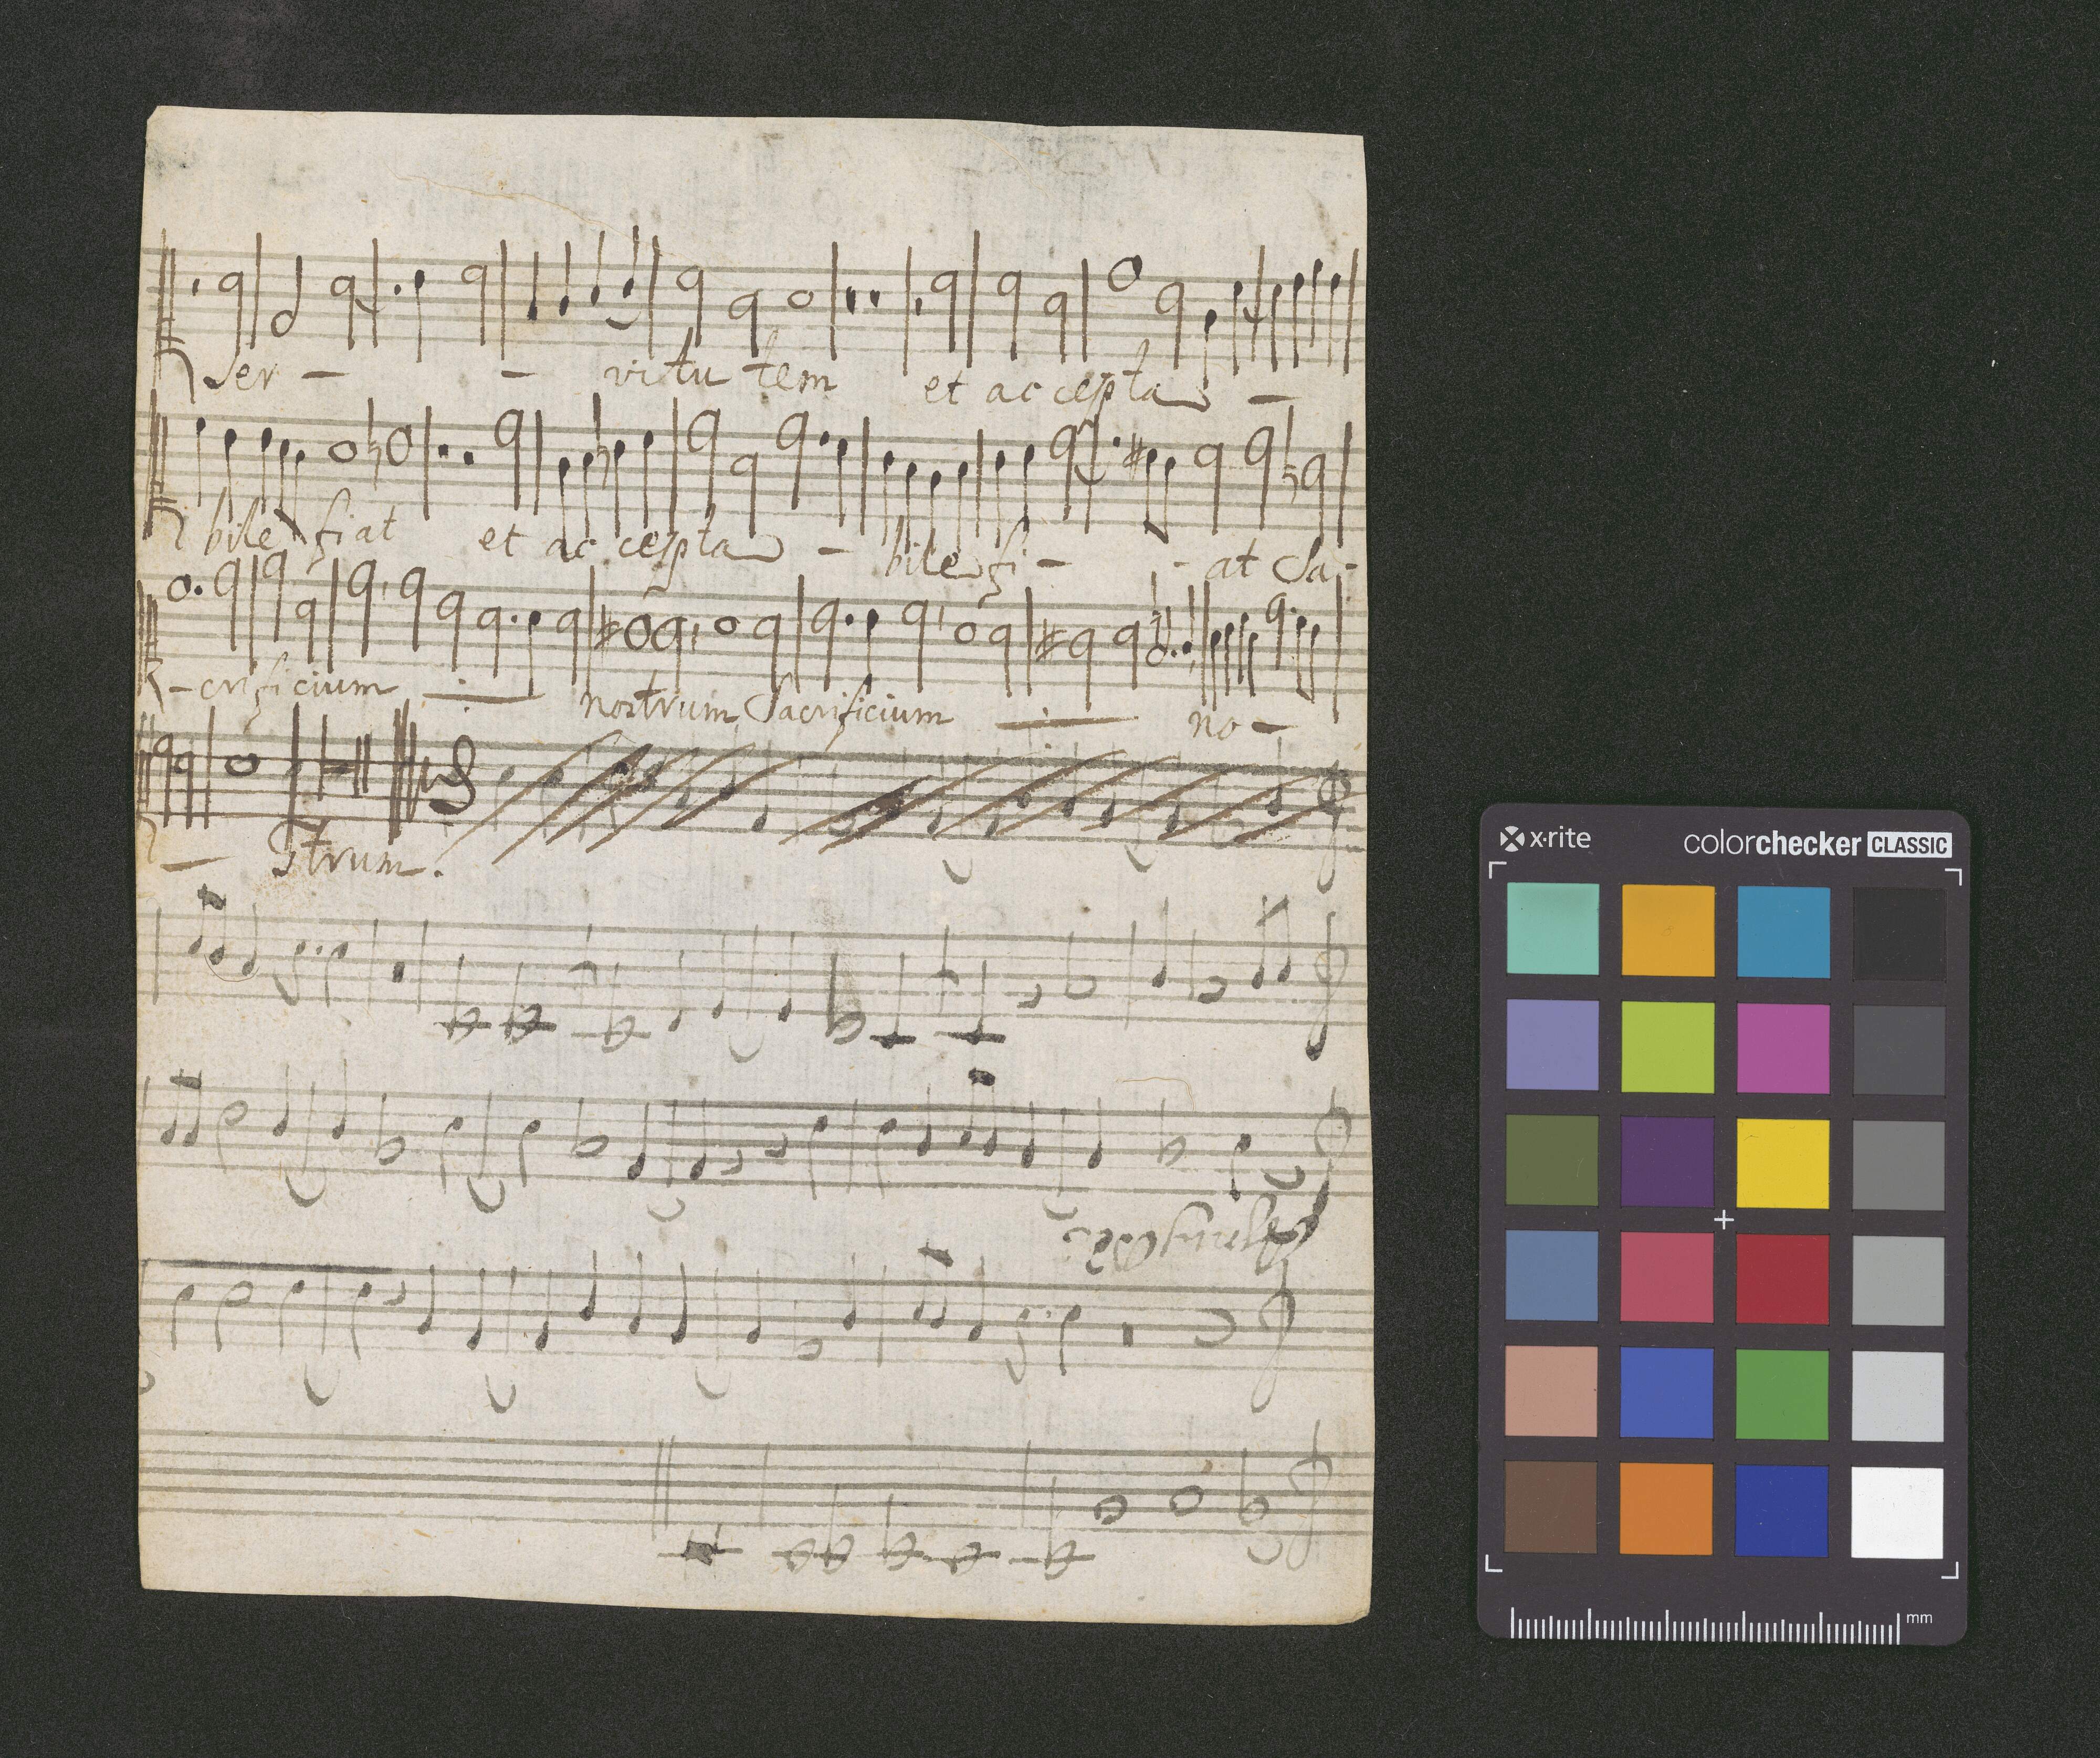 Ser - - vi tu tem et ac cepta -
bile fiat et ac cepta - bile fi - - at Sa-
-crificium nostrum Sacrificium no -
- strum.
Agnus Dei
x-rite colorchecker CLASSIC
mm